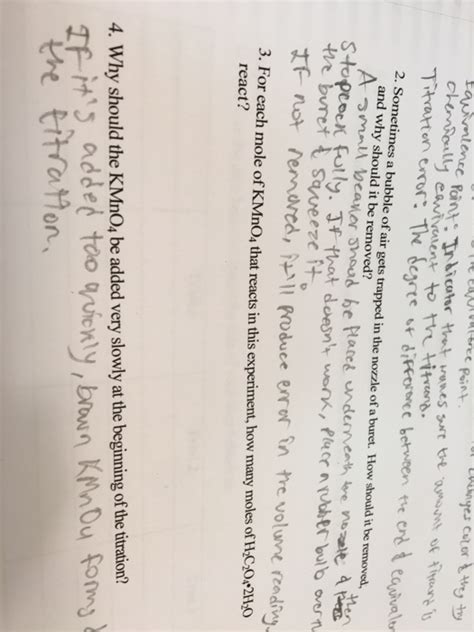 Equivalence Point: Indicator that makes sure the amount of titrant is
chemically equivalent to the titrand.
Titration error: The degree of difference between the end & equivalen
2. Sometimes a bubble of air gets trapped in the nozzle of a buret. How should it be removed,
and why should it be removed?
A small beaker should be placed underneath the nozzle & then
Stopcock fully. If that doesn't work, place a rubber bulb over th
the buret & squeeze it.
If not removed, it'll produce error in the volume reading.
3. For each mole of KMnO₄ that reacts in this experiment, how many moles of H₂C₂O₄•2H₂O
react?
4. Why should the KMnO₄ be added very slowly at the beginning of the titration?
If it's added too quickly, brown KMnO4 forms &
the titration.